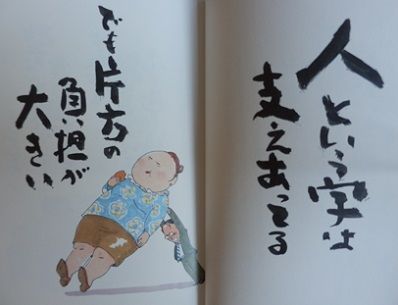 人という字は
支えあってる
でも片方の
負担が
大きい